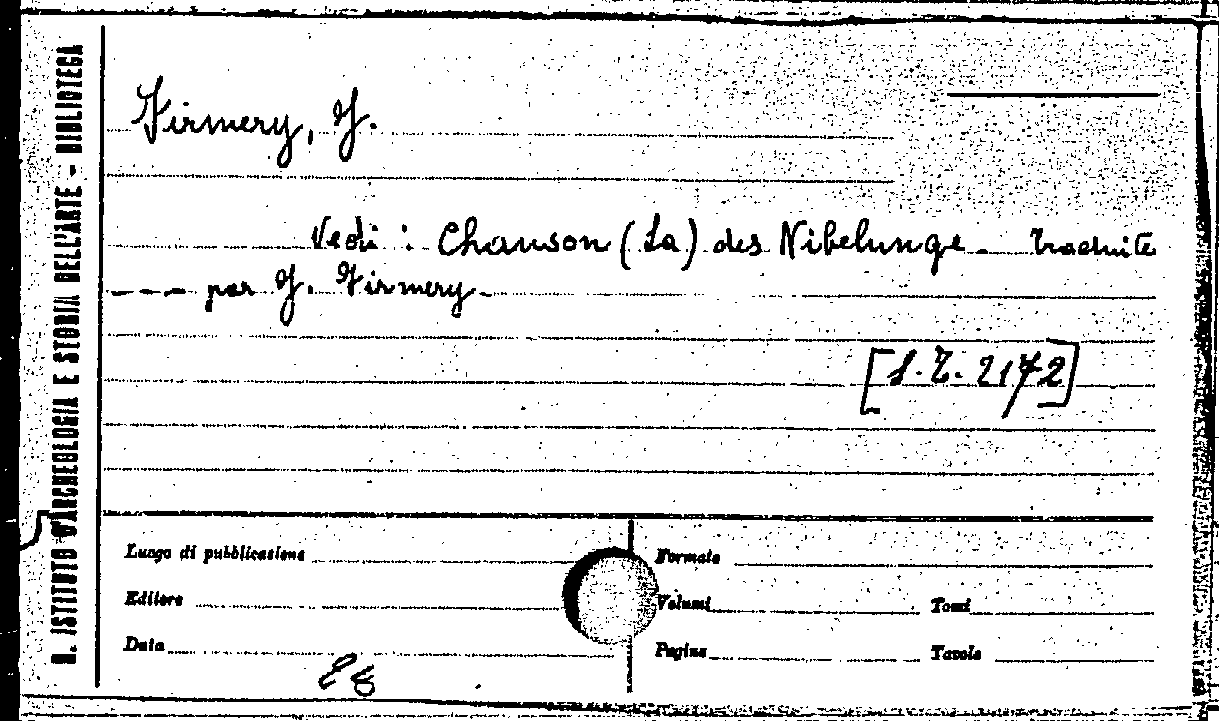 R. ISTITUTO D'ARCHEOLOGIA E STORIA DELL'ARTE - BIBLIOTECA
Firmery, J.
Vedi : Chanson (La) des Nibelunge - traduite
---- par J. Firmery -
Luogo di pubblicazione
Formato
Editore
Volumi
Tomi
Data
Pagine
Tavole